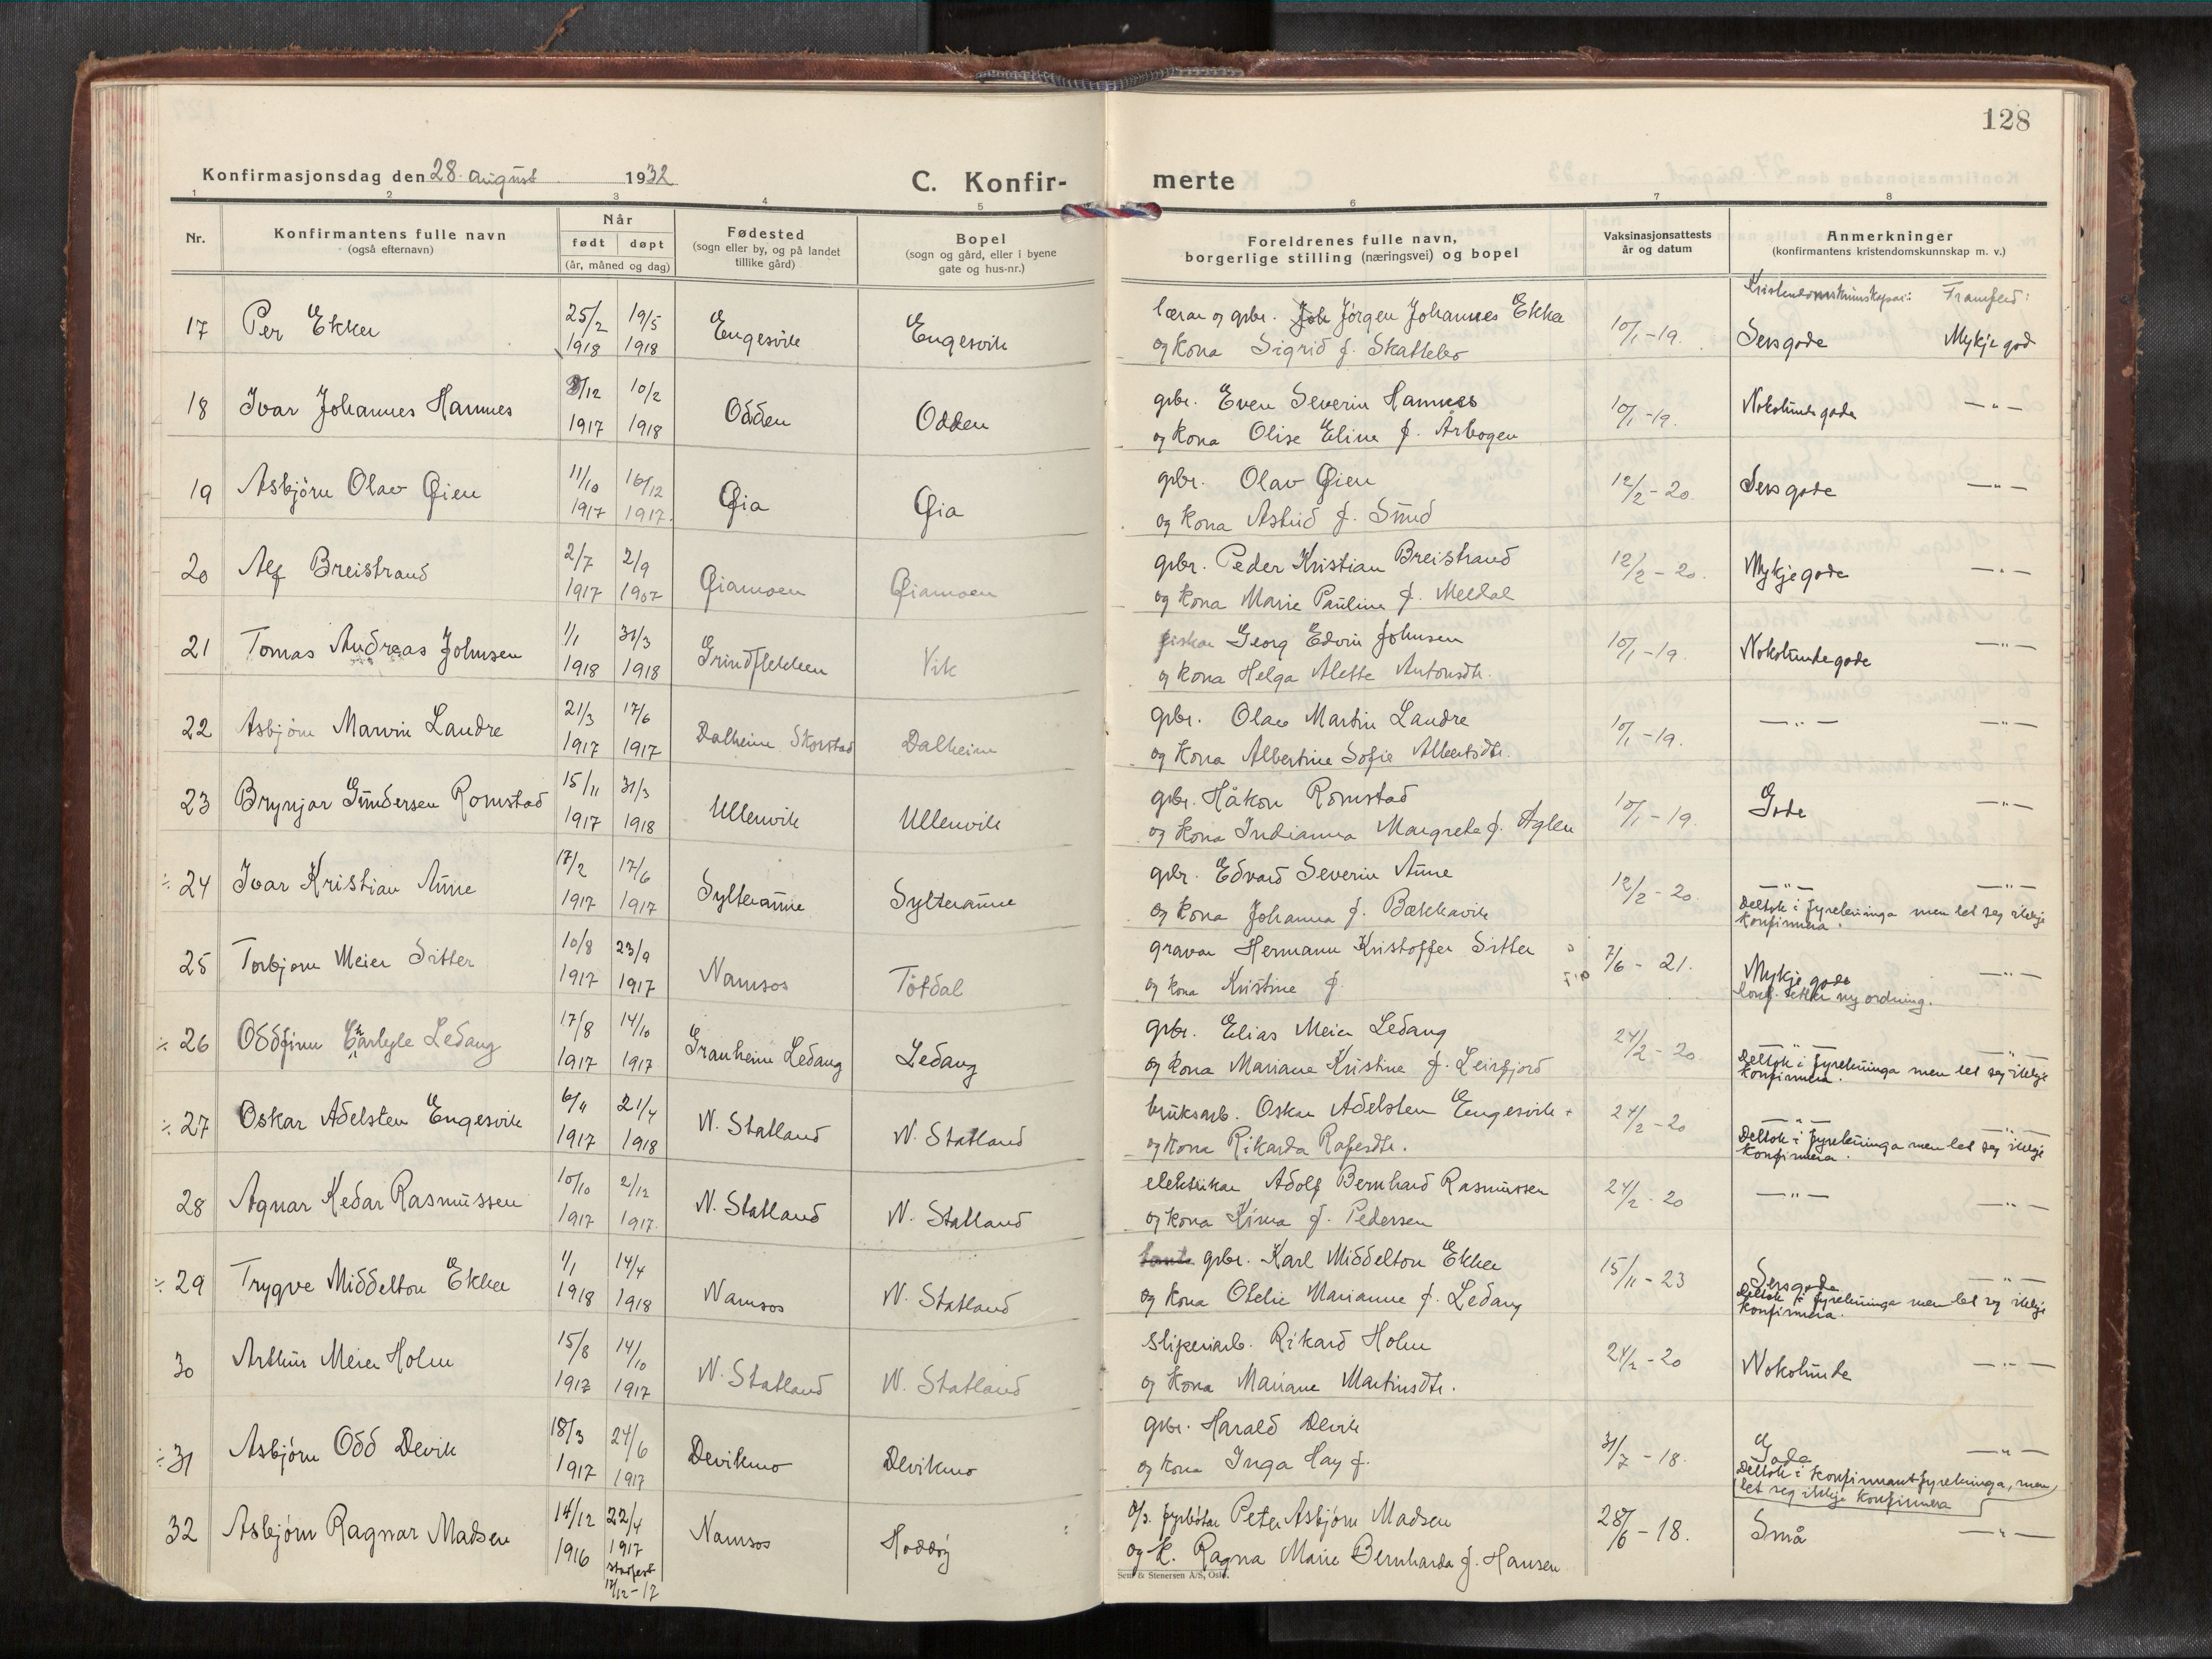 128
Konfirmasjonsdag den 28. august 1932
C. Konfir-
merte
1 2 3 4 5 6 7 8
Nr.
Konfirmantens fulle navn
(også efternavn)
Når
født døpt
(år, måned og dag)
Fødested
(sogn eller by, og på landet
tillike gård)
Bopel
(sogn og gård, eller i byene
gate og hus-nr.)
Foreldrenes fulle navn,
borgerlige stilling (næringsvei) og bopel
Vaksinasjonsattests
år og datum
Anmerkninger
(konfirmantens kristendomskunnskap m. v.)
Kristendomskunnskapar: Framferd:
17 Per Ekker 25/2 1918 19/5 1918 Engesvik Engesvik
lærar og gbr. Jørgen Johannes Ekker
og kona Sigrid f. Skatlebo
10/1-19. Sersgode Mykje god
18 Ivar Johannes Hamnes 1917 10/2 1918 Odden Odden
gbr. Even Severin Hamnes
og kona Olise Eline f. Årbogen
10/1-19. Nokolunde gode —"—
19 Asbjörn Olav Øien 11/10 1917 16/12 1917. Øia Øia
gbr. Olav Øien
og kona Astrid f. Sund
12/2-20. Sers gode —"—
20 Alf Breistrand 2/7 1917 2/9 1907 Øiamoen Øiamoen
gbr. Peder Kristian Breistrand
og kona Marie Pauline f. Meldal
12/2-20. Mykje gode —"—
21 Tomas Andreas Johnsen 1/1 1918 31/3 1918 Grindflekken Vik
fiskar Georg Edvin Johnsen
og kona Helga Alette Antonsdtr.
10/1-19. Nokolunde gode —"—
22 Asbjörn Marvin Landre 21/3 1917 17/6 1917 Dalheim Skorstad Dalheim
gbr. Olav Martin Landre
og kona Albertine Sofie Albertsdtr.
10/1-19. —"— —"—
23 Brynjar Gundersen Romstad 15/11 1917 31/3 1918 Ullenvik Ullenvik
gbr. Håkon Romstad
og kona Indianna Margrete f. Aglen
10/1-19. Gode —"—
÷ 24 Ivar Kristian Aune 17/2 1917 17/6 1917 Sylteraune Sylteraune
gbr. Edvard Severin Aune
og kona Johanna f. Bækkavik
12/2-20. —"— —"—
Deltok i fyrebuinga men let seg ikkje
konfirmera.
25 Torbjørn Meier Sitter 10/8 1917 23/9 1917 Namsos Tötdal
gravar Hermann Kristoffer Sitter
og kona Kristine f.
7/6-21. Mykje gode —"—
konf. etter ny ordning.
÷ 26 Oddfinn Charlyle Ledang 17/8 1917 14/10 1917 Granheim Ledang Ledang
gbr. Elias Meier Ledang
og kona Mariane Kristine f. Leirfjord
24/2-20 —"— —"—
Deltok i fyrebuinga men let seg ikkje
konfirmera.
÷ 27 Oskar Adelsten Engesvik 6/11 1917 21/4 1918 N. Statland N. Statland
bruksarb. Oskar Adelsten Engesvik
og kona Rikarda
24/2-20 —"— —"—
Deltok i fyrebuinga men let seg ikkje
konfirmera.
28 Agnar Kedar Rasmussen 10/10 1917 2/12 1917. N. Statland N. Statland
elektrikar Adolf Bernhard Rasmussen
og kona f. Pedersen
24/2-20 —"— —"—
÷ 29 Trygve Middelton Ekker 1/1 1918 14/4 1918 Namsos N. Statland
gbr. Karl Middelton Ekker
og kona Otelie Marianne f. Ledang
15/11-23 Sersgode —"—
Deltok i fyrebuinga men let seg ikkje
konfirmera.
30 Arthur Meier Holm 15/8 1917 14/10 1917 N. Statland N. Statland
sliperiarb. Rikard Holm
og kona Mariane Martinsdtr.
24/2-20 Nokolunde —"—
÷ 31 Asbjörn Odd Devik 18/3 1917 24/6 1917 Devikmo Devikmo
gbr. Harald Devik
og kona Inga Hay f.
31/7-18. Gode —"—
Deltok i konfirmantfyrebuinga, men
let seg ikkje konfirmera
32 Asbjörn Ragnar Madsen 14/12 1916 22/4 1917 stadfest 12/12-17 Namsos Hoddöy
fyrbötar Peter Asbjörn Madsen
og k. Ragna Marie Bernharda f. Hansen
28/6-18. Små —"—
Sem & Stenersen A/S, Oslo.